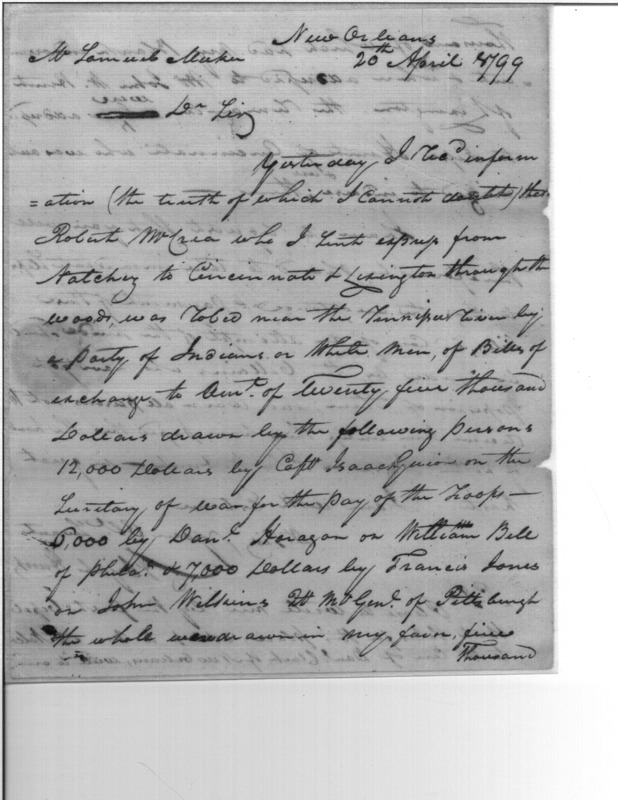 New Orleans
20th April 1799
Mr Samuel Meeker
Dr Sir
Yesterday I Rec'd inform
=ation (the truth of which I Cannot doubt) that
Robert McCrea who I Sent express from
Natchez to Cincinnati & Lexington through the
woods, was Robed near the Tennipee River by
a party of Indians or White Men, of Bills of
exchange to Amt. of Twenty five thousand
Dollars drawn by the following persons
12,000 Dollars by Capt Isaac Guion on the
Secretary of war for the pay of the Troops—
6,000 by Danl. Horagon on William Bell
of Phila. & 7,000 Dollars by Francis Jones
on John Wilkins Qt Mr Genl. of Pittsburgh
the whole were drawn in my favor, five
Thousand